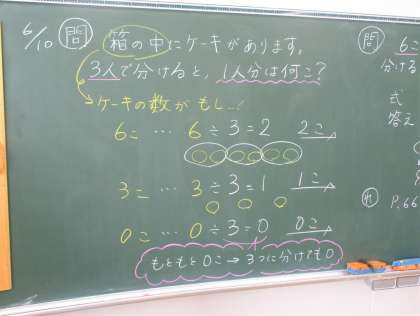 6/10 問 箱の中にケーキがあります。
3人で分けると、1人分は何こ?
→ケーキの数がもし…!
6こ … 6÷3=2 2こ
3こ … 3÷3=1 1こ
0こ … 0÷3=0 0こ
もともと0こ→3つに分けても0
問 6こ
分ける
式
答え
P.66